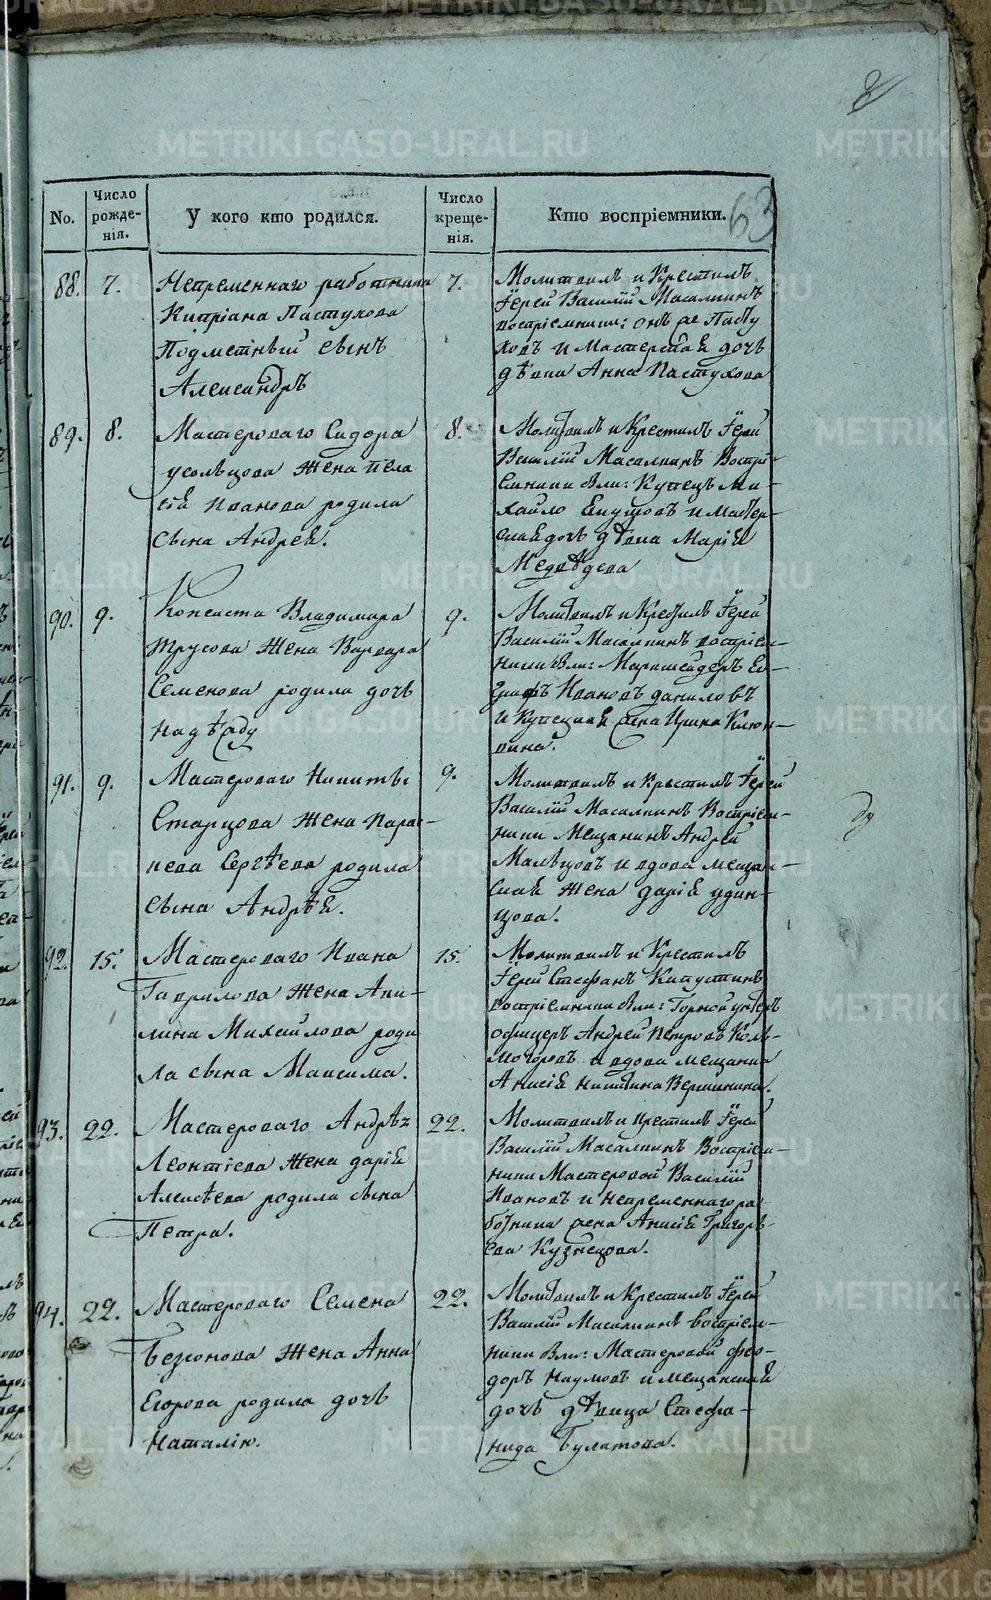 METRIKI.GASO-URAL.RU
63
No.
Число рожде-нія.
У кого кто родился.
Число креще-нія.
Кто воспріемники.
88. 7.
Непременнаго работника
Кипріана Пастухова
Подметный сынъ
Александръ
7.
Молитвилъ и Крестилъ
Іерей Василій Масалкинъ
воспріемники: онъ же Пасту
ховъ и Мастерская дочь
дѣвка Анна Пастухова
89. 8.
Мастероваго Сидора
усольцова жена Пела
гія Иванова родила
сына Андрея.
8.
Молитвилъ и Крестилъ Іерей
Василій Масалкинъ Воспріе-
емники были: Купецъ Ми-
хайло и Мастер-
ская дочь дѣвка Марія
Медвѣдева
90. 9.
Копеиста Владимира
Трусова жена Варвара
Семенова родила дочь
Надѣжду
9.
Молитвилъ и Крестилъ Іерей
Василій Масалкинъ воспріем-
ники были: Маркшейдеръ Ев-
графъ Ивановъ даниловъ
и Купецкая жена Ирина Клюк-
вина.
91. 9.
Мастероваго Никиты
Старцова жена Парас-
кева Сергѣева родила
сына Андрѣя.
9.
Молитвилъ и Крестилъ Іерей
Василій Масалкинъ Воспріем-
ники Мещанинъ Андрей
Мальцовъ и вдова мещан-
ская жена дарія удин-
цова.
92. 15.
Мастероваго Ивана
Гаврилова жена Аки-
лина Михайлова роди
ла сына Максима.
15.
Молитвилъ и Крестилъ
Іерей Стефанъ Капустинъ
воспріемники были: Горной унтеръ
офицеръ Андрей Петровъ Кол-
могоровъ и вдова мещанка
Анисія Никитина Вершинина.
93. 22.
Мастероваго Андрѣя
Леонтіева жена дарія
Алексѣева родила сына
Петра.
22.
Молитвилъ и крестилъ Іерей
Василій Масалкинъ Воспріем-
ники Мастеровой Василій
Ивановъ и непременнаго ра
ботника жена Анисія Григорь-
ева Кузнецова.
94. 22.
Мастероваго Семена
жена Анна
Егорова родила дочь
Наталію.
22.
Молитвилъ и Крестилъ Іерей
Василій Масалкинъ воспріем-
ники были: Мастеровой фео-
доръ Наумовъ и мещанская
дочь дѣвица Стефа-
нида Булатова.